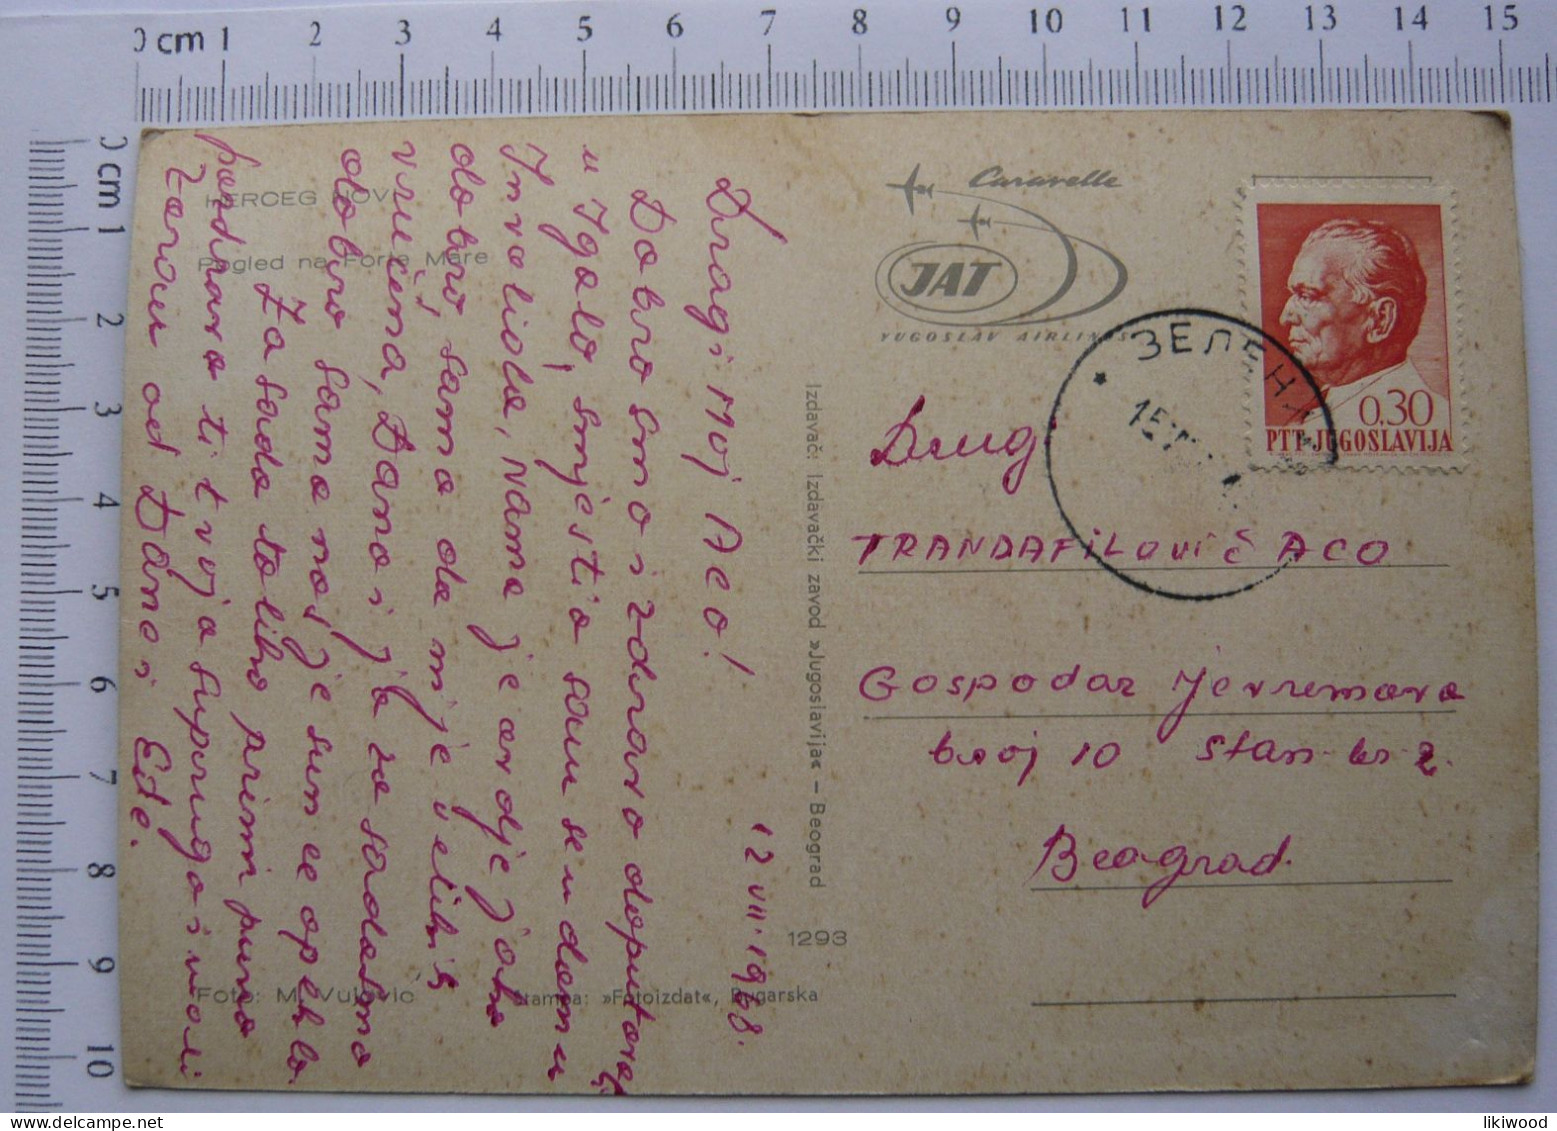 0 cm 1 2 3 4 5 6 7 8 9 10 11 12 13 14 15
0 cm 1 2 3 4 5 6 7 8 9 10
HERCEG NOVI
Pogled na Forte Mare
Dragi Moj Aco!
12 VIII. 1968.
Dobro smo i zdravo doputovali
u Igalo, smjestio sam se u domu
Invalida, Nama je ovdje jako
dobro, samo da mi je velikih
vrućina, Dano i je za sada
dobro samo nas je sunce opeklo
Za sada toliko primi puno
pozdrava ti tvoja supruga i voli
od Dano i Ede.
Foto: M. Vujović
Štampa: »Fotoizdat«, Bugarska
1293
Izdavač: Izdavački zavod »Jugoslavija« – Beograd
Caravelle
JAT
YUGOSLAV AIRLINES
ЗЕЛЕНИ
15
0,30
PTT JUGOSLAVIJA
Drug
TRANDAFiLoviĆ ACO
Gospodar Jevremova
broj 10 Stan br 2.
Beograd.
likiwood